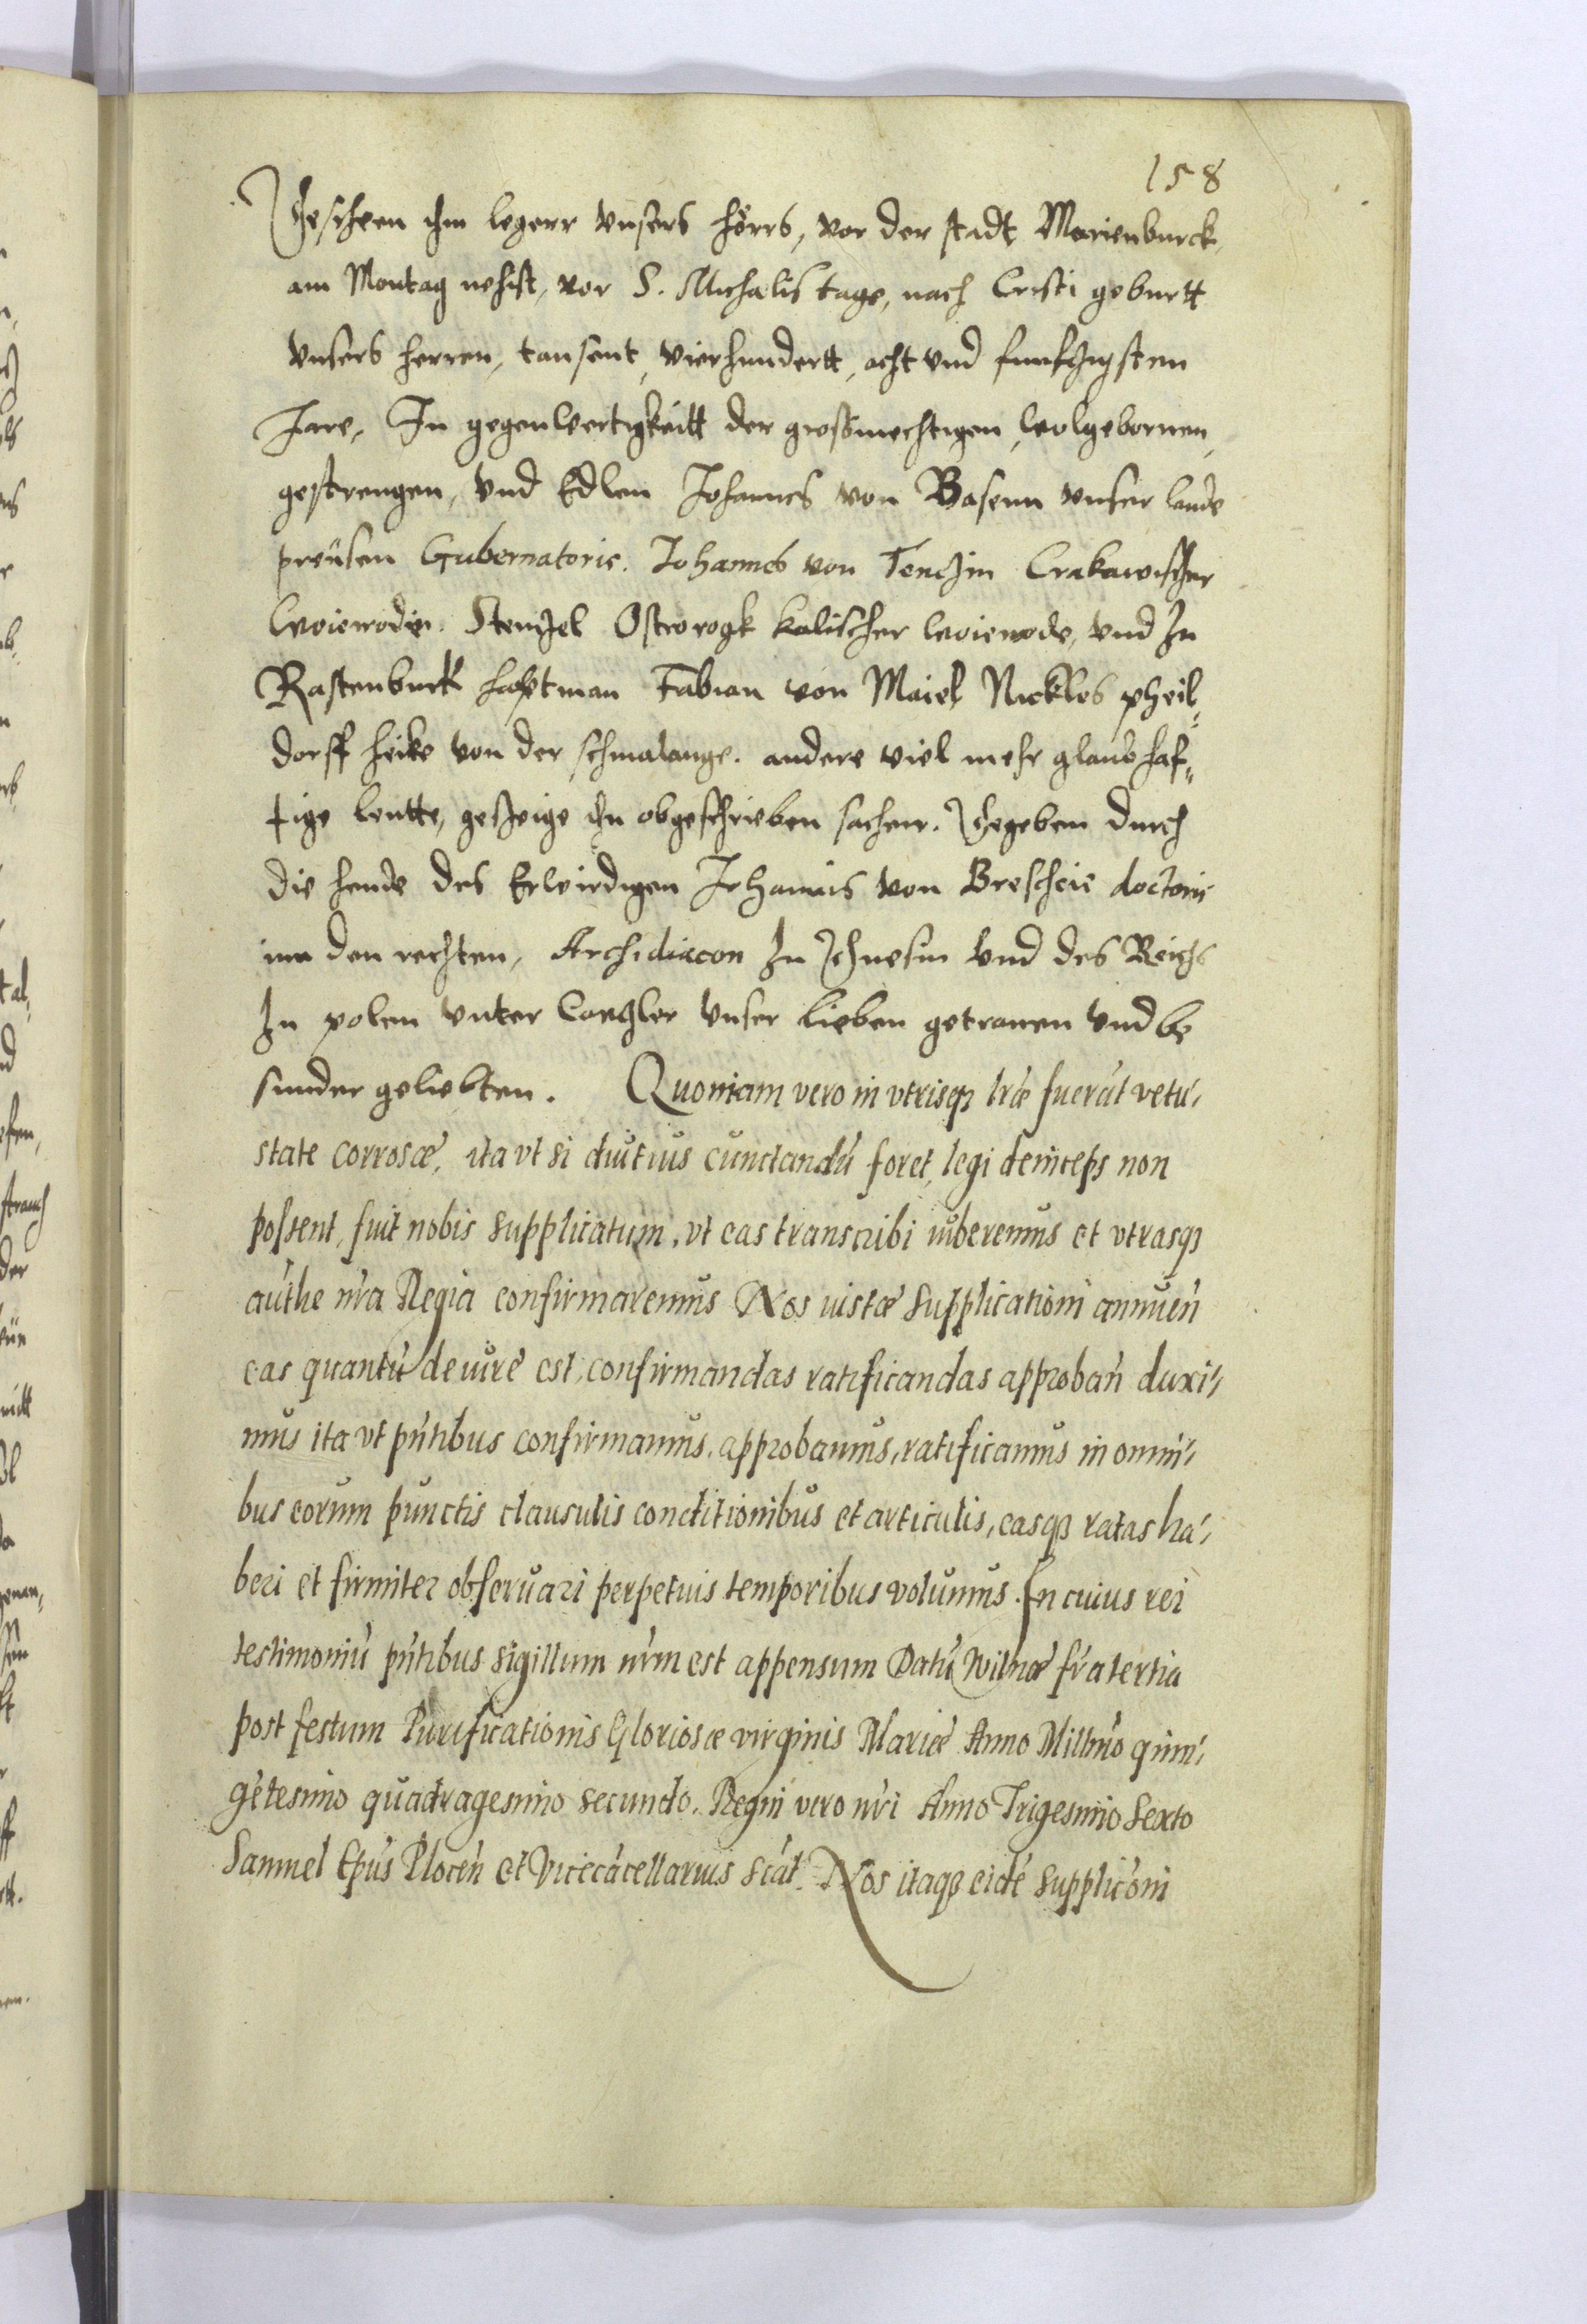 158
Gescheen ihm legerr vnsers hörrs, vor der stadt Marienburck
am Montag nehist, vor S. Michalis tage, nach Cristi geburtt
vnsers herren, tausent, vierhundertt, acht vnd funfczigsten
Jare, In gegenwertigkeitt der grossmechtigen, wolgebornen,
gestrengen, vnd Edlen Johannes von Basenn vnser lande
preüsen Gubernatoris. Johannes von Tenczin Crakawischer
woiewoden. Stenczel Ostrorogk kalischer woiewode, vnd zu
Rastenburk haptman Fabian von Maiel Nickles pheil,,
dorff heike von der schmalange. andere viel mehr glaubhaf,,
tige leutte, geczeige ihn obgeschrieben sachenn. Gegeben durch
die hende des Erwirdigen Johannis von Brescheie doctoris
inn den rechten, Archidiacon zu Gnesin vnd des Reichs
zu polen vnter Canczler vnser lieben getrauen vnd be
sunder geliebten. Quoniam vero in vtrisqȝ lr̃æ fuerūt vetu,
state corrosæ, ita vt si diutius cunctandū foret, legi deinceps non
possent, fuit nobis supplicatum, vt eas transcribi iuberemus et vtrasqȝ
aūthe nr̃a Regia confirmaremus Nos iustæ supplicationi annuen̄
eas quantū de iure est, confirmandas ratificandas approban̄ duxi,,
mus ita vt pn̄tibus confirmamus, approbamus, ratificamus in omni,,
bus eorum punctis clausulis conditionibus et articulis, easqȝ ratas ha,,
beri et firmiter obseruari perpetuis temporibus volumus. In cuius rei
testimoniū pn̄tibus sigillum nr̃m est appensum Datū Wilnæ fr̃a tertia
post festum Purificationis Gloriosæ virginis Mariæ Anno Millm̄o quin,,
gētesimo quadragesimo secundo. Regni vero nr̃i Anno Trigesimo Sexto
Samuel Ep̄us Plocen̄ et Vicecācellarius sc̄at. Nos itaqȝ eidē supplic̄oni